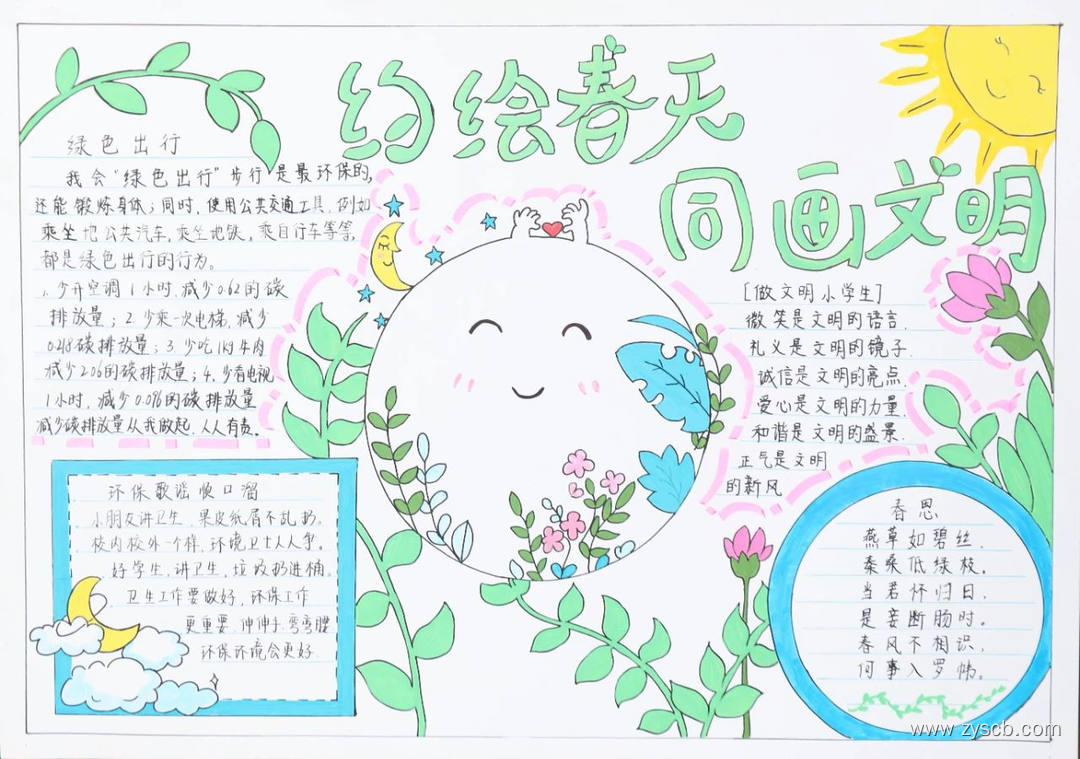 约绘春天
同画文明
绿色出行
我会“绿色出行”步行是最环保的,
还能锻炼身体;同时,使用公共交通工具,例如
乘坐地公共汽车,乘坐地铁,乘自行车等等,
都是绿色出行的行为。
1、少开空调1小时,减少0.62的碳
排放量;2、少乘一次电梯,减少
0.218碳排放量;3、少吃1kg牛肉
减少2.06的碳排放量;4、少看电视
1小时,减少0.096的碳排放量
减少碳排放量从我做起,人人有责。
[做文明小学生]
微笑是文明的语言,
礼义是文明的镜子,
诚信是文明的亮点,
爱心是文明的力量,
和谐是文明的盛景,
正气是文明
的新风
环保歌谣顺口溜
小朋友讲卫生,果皮纸屑不乱扔。
校内校外一个样,环境卫士人人争。
好学生,讲卫生,垃圾扔进桶。
卫生工作要做好,环保工作
更重要,伸伸手,弯弯腰
环保环境会更好.
春思
燕草如碧丝,
秦桑低绿枝。
当君怀归日,
是妾断肠时。
春风不相识,
何事入罗帏。
www.zyscb.com